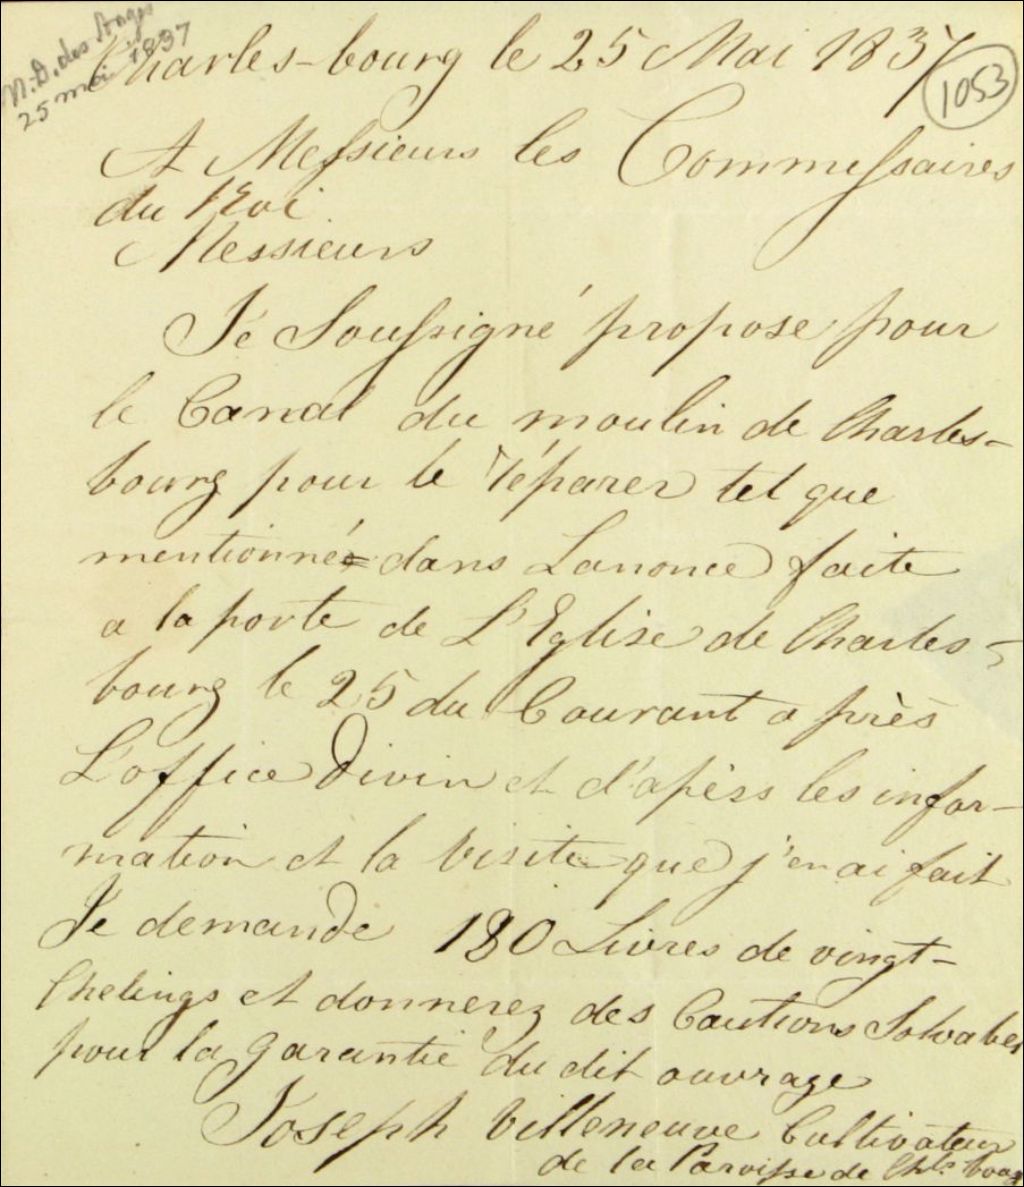 N.D. des Anges
25 mai 1837
Charles-bourg le 25 Mai 1837
1053
A Messieurs les Commissaires
du Roi
Messieurs
Je Soussigné propose pour
le Canal du moulin de Charles-
bourg pour le réparer tel que
mentionné dans Lanonce faite
a la porte de L'Eglise de Charles-
bourg le 25 du Courant après
L'office Divin et d'apèrs les infor-
mation et la visite que j'en ai fait
Je demande 180 Livres de vingt-
Chelings et donnerez des Cautions Solvables
pour la garantie du dit ouvrage
Joseph Villeneuve Cultivateur
de la Paroisse de Chls bourg